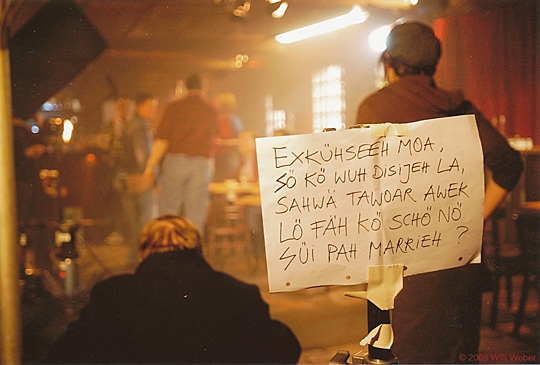 EXKÜHSEEH MOA,
SÖ KÖ WUH DISIJEH LA,
SAHWÄ TAWOAR AWEK
LÖ FÄH KÖ SCHÖ NÖ
SÜI PAH MARRIEH ?
© 2005 Will Weber